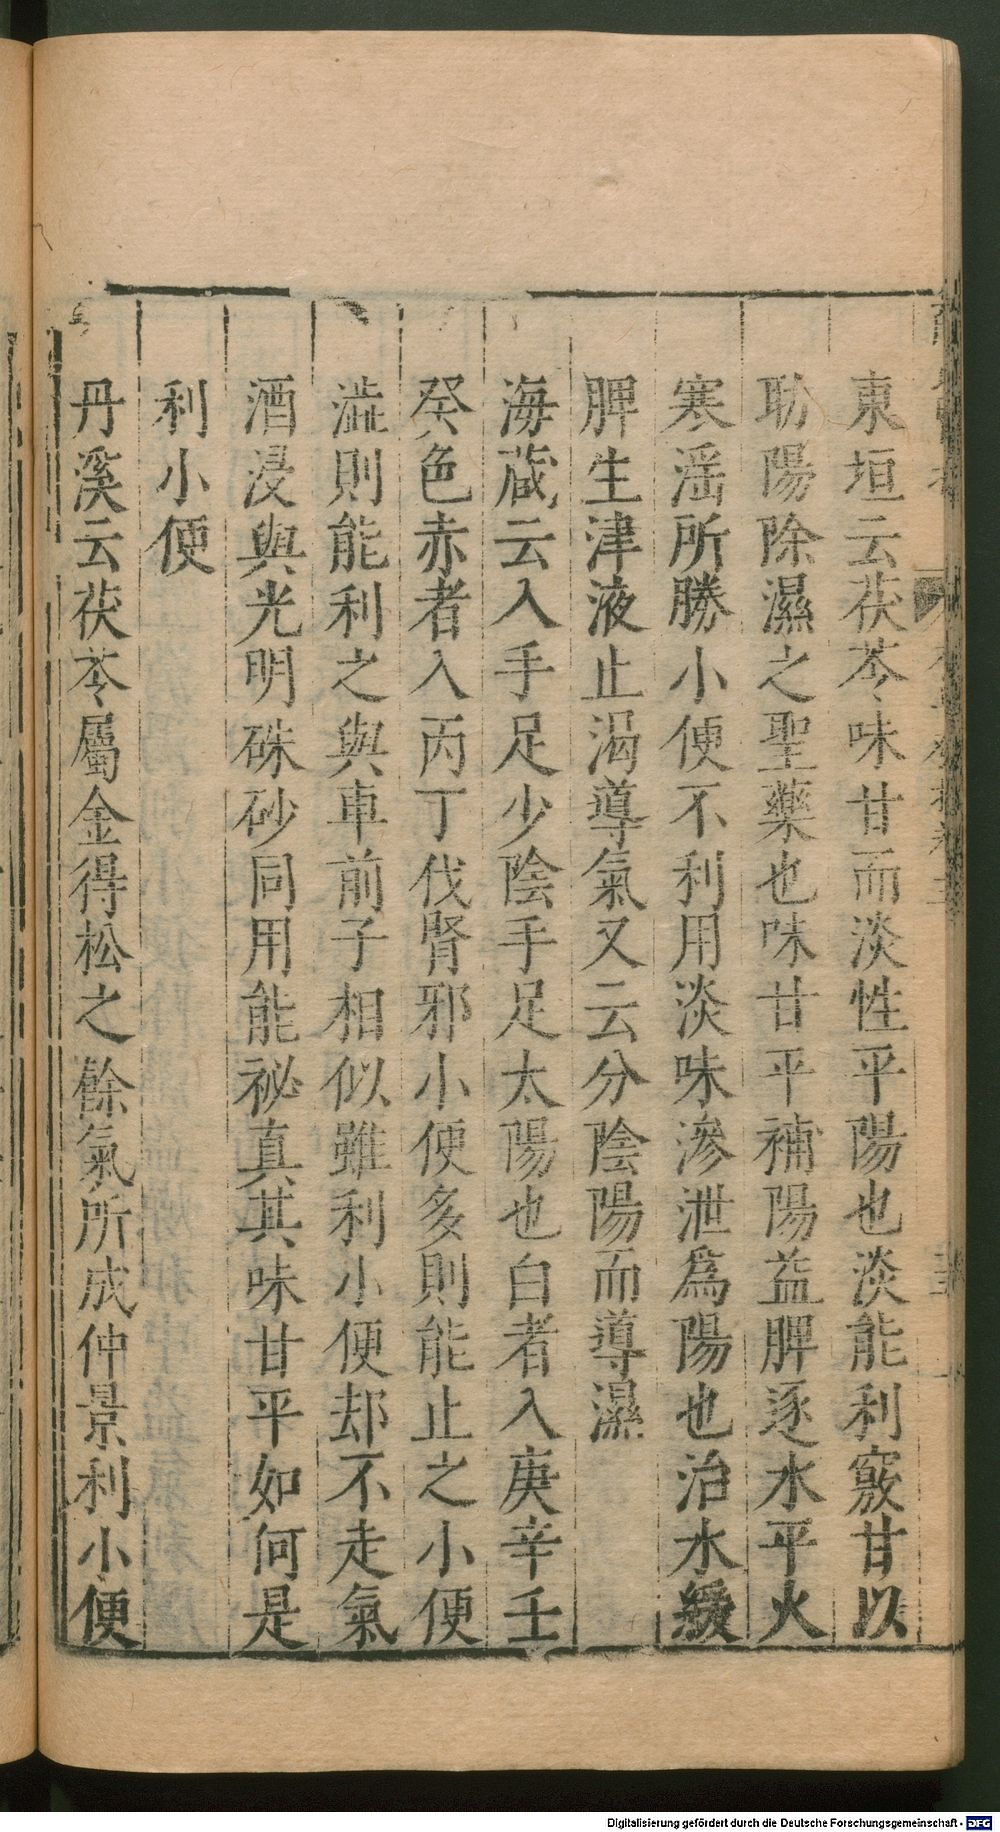 東垣云茯苓味甘而淡性平陽也淡能利竅甘以
助陽除濕之聖藥也味甘平補陽益脾逐水平火
寒滛所勝小便不利用淡味滲泄爲陽也治水緩
脾生津液止渴導氣又云分陰陽而導濕
海藏云入手足少陰手足太陽也白者入庚辛壬
癸色赤者入丙丁伐腎邪小便多則能止之小便
澁則能利之與車前子相似雖利小便却不走氣
酒浸與光明硃砂同用能祕真其味甘平如何是
利小便
丹溪云茯苓屬金得松之餘氣所成仲景利小便
Digitalisierung gefördert durch die Deutsche Forschungsgemeinschaft - DFG